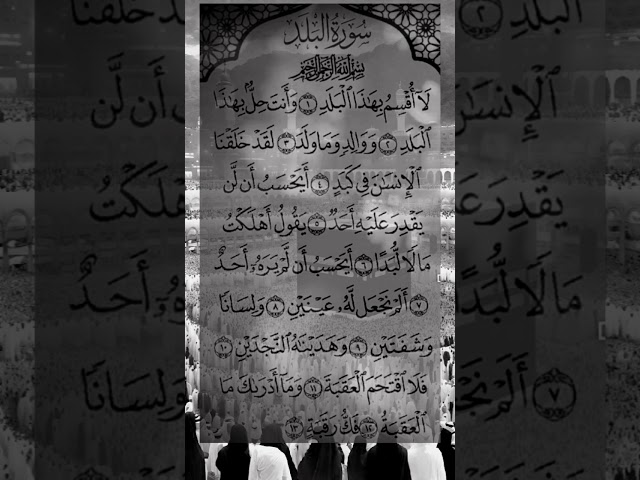 سُورَةُ الْبَلَدِ
بِسْمِ اللَّهِ الرَّحْمَٰنِ الرَّحِيمِ
لَآ أُقْسِمُ بِهَٰذَا ٱلْبَلَدِ ١ وَأَنتَ حِلٌّۢ بِهَٰذَا
ٱلْبَلَدِ ٢ وَوَالِدٍ وَمَا وَلَدَ ٣ لَقَدْ خَلَقْنَا
ٱلْإِنسَٰنَ فِى كَبَدٍ ٤ أَيَحْسَبُ أَن لَّن
يَقْدِرَ عَلَيْهِ أَحَدٌ ٥ يَقُولُ أَهْلَكْتُ
مَالًا لُّبَدًا ٦ أَيَحْسَبُ أَن لَّمْ يَرَهُۥٓ أَحَدٌ
٧ أَلَمْ نَجْعَل لَّهُۥ عَيْنَيْنِ ٨ وَلِسَانًا
وَشَفَتَيْنِ ٩ وَهَدَيْنَٰهُ ٱلنَّجْدَيْنِ ١٠
فَلَا ٱقْتَحَمَ ٱلْعَقَبَةَ ١١ وَمَآ أَدْرَىٰكَ مَا
ٱلْعَقَبَةُ ١٢ فَكُّ رَقَبَةٍ ١٣